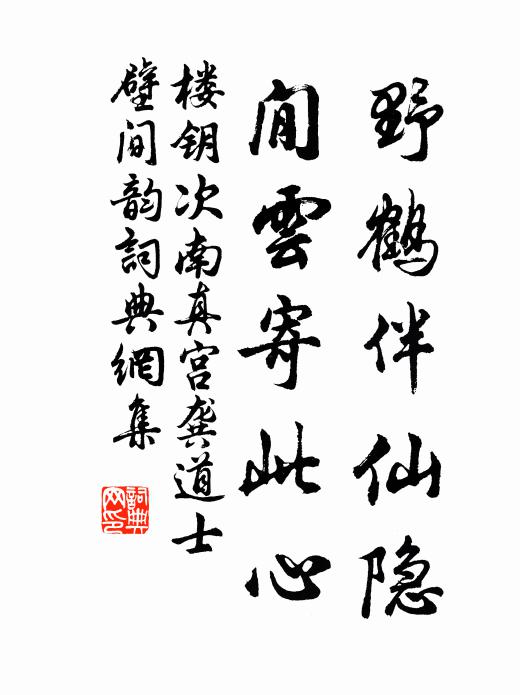 野鹤伴仙隐
闲雲寄此心
楼钥次南真宫龚道士
壁间韵詞典網集
詞典網印